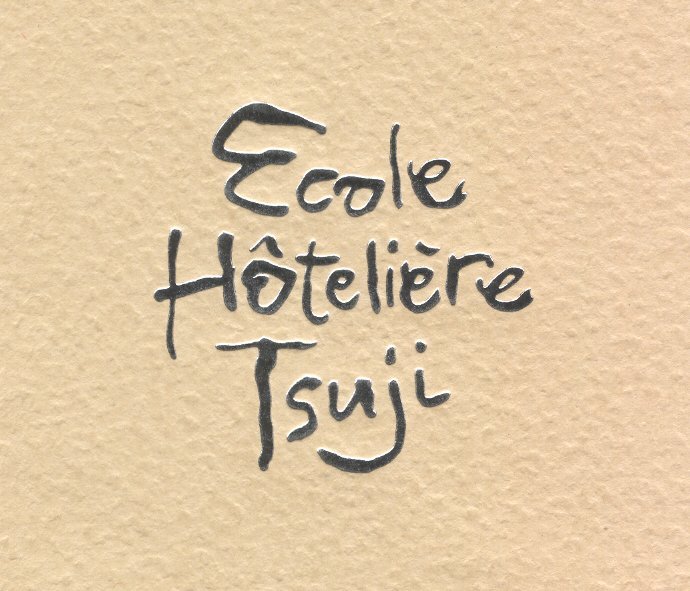 Ecole
Hôtelière
Tsuji